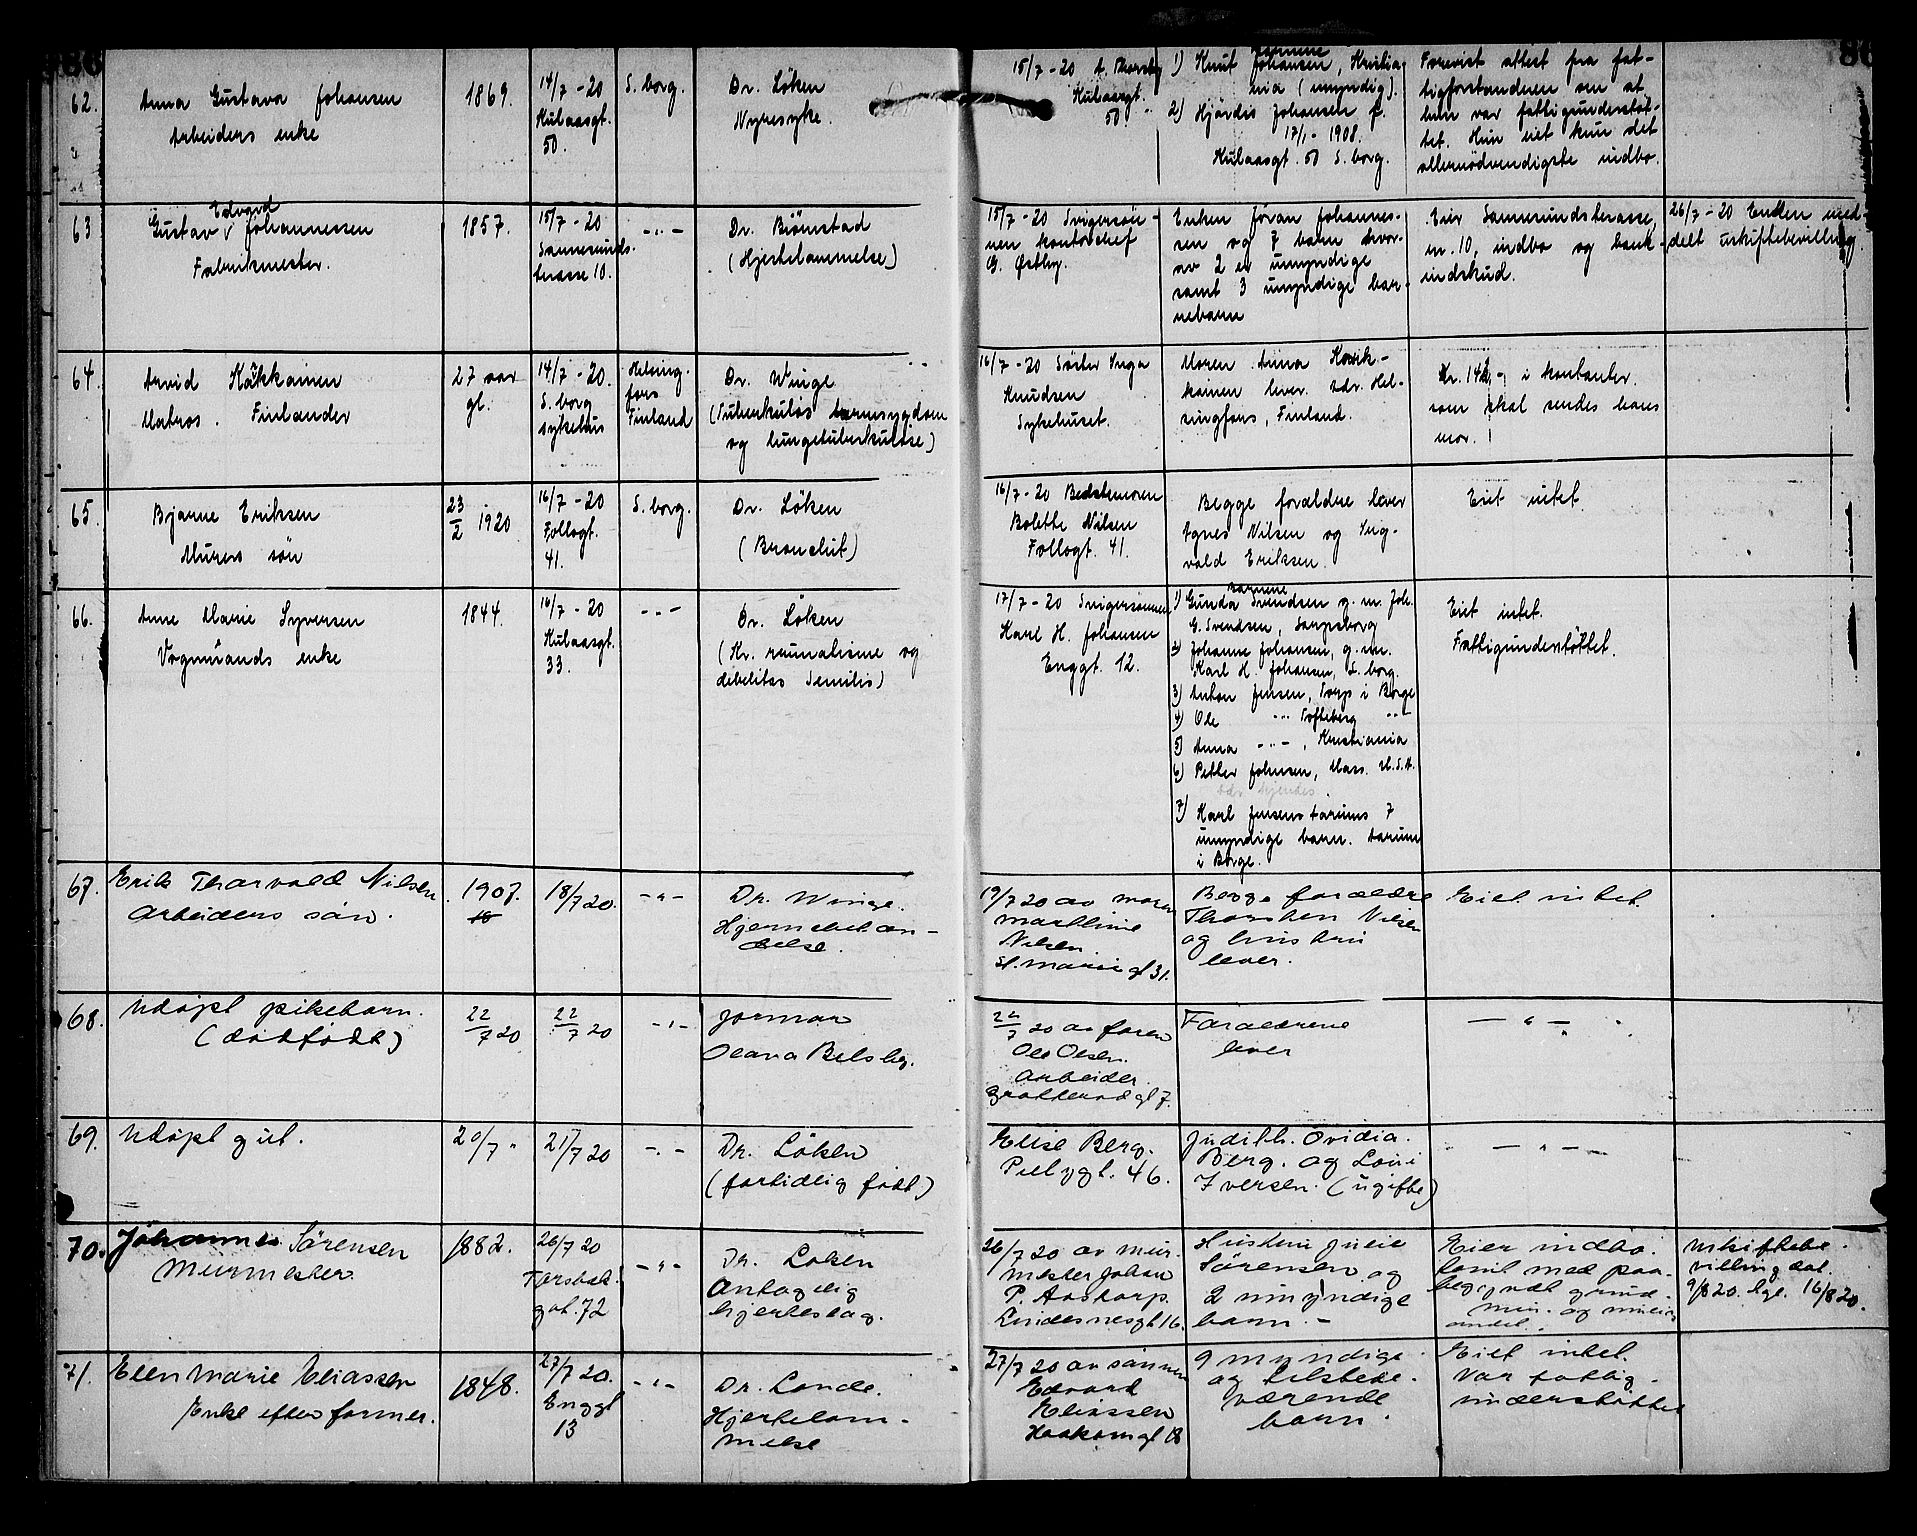 86
62.
Anna Gustava Johansen
Arbeiders enke
1869.
14/7 - 20
Kulaasgt.
50.
S. borg.
Dr. Löken
Nyresyke.
15/7 - 20 A. Thorsby
Kulaasgt.
50.
Barnene
1) Knut Johansen, Kristia-
nia (umyndig).
2) Hjördis Johansen f.
17/1 - 1908.
Kulaasgt. 50 S. borg.
Forevist attest fra fat-
tigforstanderen om at
hun var fattigunderstöt-
tet. Hun eiet kun det
allernödvendigste indbo.
63
Edvard
Gustav v Johannessen
Fabrikmester.
1857.
15/7 - 20
Sannesunds-
terasse 10.
-"-
Dr. Björnstad
(Hjertelammelse)
15/7 - 20 Svigersön-
nen kontorchef
G. Østby.
Enken Jöran Johannes-
sen og 7 barn hvor-
av 2 er umyndige
samt 3 umyndige bar-
nebarn
Eier Sannesundsterasse
nr. 10, indbo og bank-
indskud.
26/7 - 20 Enken med-
delt uskiftebevilling.
64.
Arvid Käkkainen
Matros. Finlænder
27 aar
gl.
14/7 - 20.
S. borg
sykehus
Helsing-
fors
Finland
Dr. Winge
(Tuberkuløs tarmsygdom
og lungetuberkuløse)
16/7 - 20 Söster Inga
Knudsen
Sykehuset.
Moren Anna
kainen lever. adr. Hel-
singfors, Finland.
Kr. 142,- i kontanter.
som skal sendes hans
mor.
65.
Bjarne Eriksen
Murers sön
23
2 1920
16/7 - 20
Follogt.
41.
S. borg.
Dr. Löken
(Bronchit)
16/7 - 20 Bedstemoren
Bolette Nilsen
Follogt. 41.
Begge forældre lever
Agnes Nilsen og Sig-
vald Eriksen.
Eiet intet.
66.
Anne Marie Syversen
Vognmands enke
1844.
16/7 - 20
Kulaasgt.
33.
-"-
Dr. Löken
(Kr. reumatisme og
debelitas senilis)
17/7 - 20 Svigersönnen
Karl H. Johansen
Enggt. 12.
Barnene
1) Gunda Svendsen g. m. Joh.
G. Svendsen, Sarpsborg
2) Johanne Johansen, g. m.
Karl H. Johansen, S. borg.
3) Anton Jensen, Torp i Borge
4) Ole -"- Tofteberg -"-
5) Anna -"-, Kristiania
6) Petter Johnsen, Mass. U.S.A.
7) Karl Jensens Aarums 7
umyndige barn. Aarum
i Borge.
Eiet intet.
Fattigunderstöttet.
67.
Erik Thorvald Nilsen
Arbeiders sön.
1907.
18/7 20.
-"-
Dr. Winge.
Hjernebetæn-
delse.
19/7 20 av moren
Mathine
Nilsen
St. Marie gt 31.
Begge forældre
Thorsten Nilsen
og hustru
lever.
Eiet intet.
68.
Udöpt pikebarn.
(dödfödt)
22
7 20
22
7 20
-"-
Jormor
Olava Belsby.
22
7 20 av faren
Ole Olsen.
Arbeider
gt 7.
Forældrene
lever
— " —
69.
Udöpt gut.
20/7 "
21/7 20
-"-
Dr. Löken
(fortidlig födt)
Elise Berg.
Pellygt. 46.
Judith. Ovidia.
Berg. og Loui
Iversen. (ugifte)
— " —
70.
Johannes Sörensen
Murmester
1882.
26/7 20
Torsbæk.
gat. 72
-"-
Dr. Loken
Antagelig
hjerteslag.
26/7 20 av mur-
mester Johan
P. Aastorp.
Lindesnesgt 16.
Hustru Julie
Sörensen og
2 umyndige
barn. -
Eier indbo.
tomt med paa-
begyndt grund-
mur. og
andel.
Uskiftebe-
villing dat.
9/8 20. lgl. 16/8 20.
71.
Ellen Marie Eliassen
Enke efter former.
1848.
27/7 20.
Enggt
13
-"-
Dr. Londe.
Hjertelam-
melse
27/7 20 av sönnen
Edvard
Eliassen
Haakonsgt 18
9 myndige
og tilstede-
værende
barn.
Eiet intet.
Var fattig-
understöttet